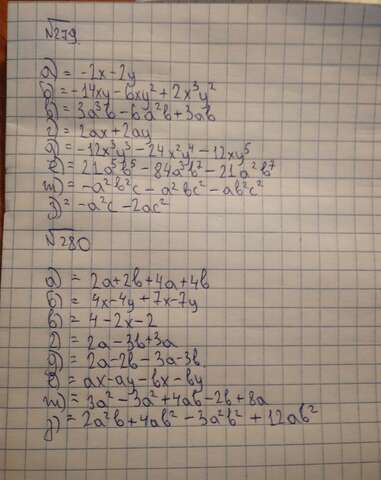 №279.
а) = -2x-2y
б) = -14xy-6xy²+2x³y²
в) = 3a³b-6a²b+3ab
г) = 2ax+2ay
д) = -12x³y³-24x²y⁴-12xy⁵
е) = 21a⁵b⁵-84a³b²-21a²b⁷
ж) = -a²b²c-a²bc²-ab²c²
з) = -a²c-2ac²
№280
а) = 2a+2b+4a+4b
б) = 4x-4y+7x-7y
в) = 4-2x-2
г) = 2a-3b+3a
д) = 2a-2b-3a-3b.
е) = ax-ay-bx-by
ж) = 3a²-3a²+4ab-2b+8a
з) = 2a²b+4ab²-3a²b²+12ab²